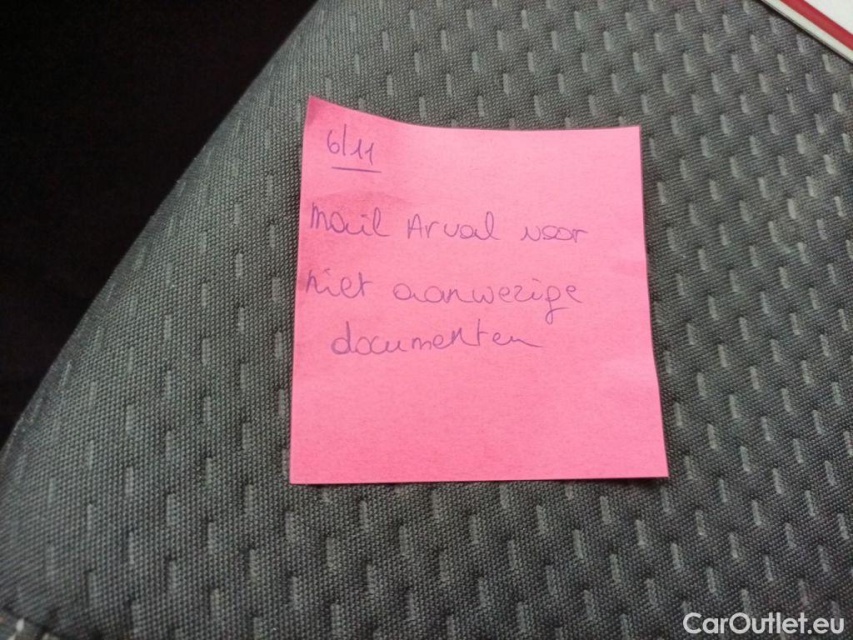 6/11
Mail Arval voor
niet aanwezige
documenten
CarOutlet.eu